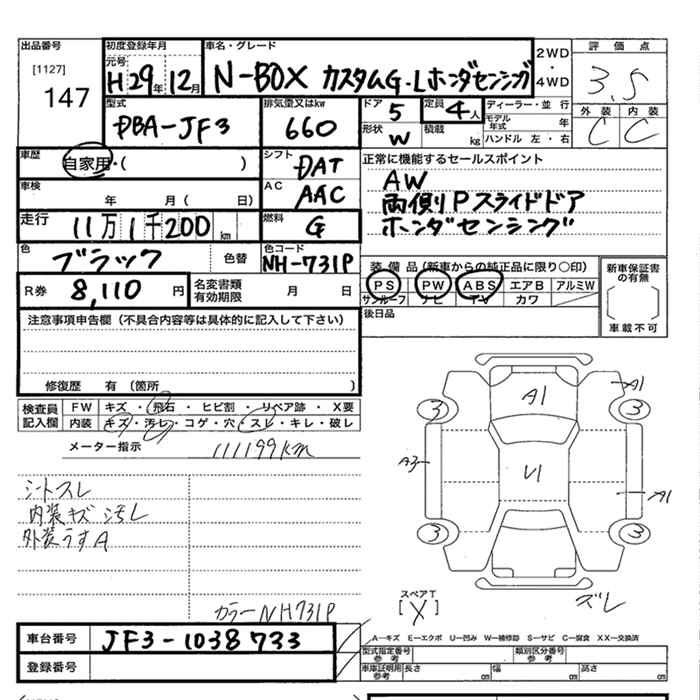 出品番号
[1127]
147
初度登録年月
元号
H29年12月
車名・グレード
N-BOX カスタムG・Lホンダセンシング
2WD
・
4WD
評価点
3.5
外装 内装
C C
型式
DBA-JF3
排気量又はkw
660
ドア
5
定員
4人
形状
W
積載
kg
ディーラー・並行
モデル年式 年
ハンドル 左・右
車歴
自家用・( )
シフト
DAT
正常に機能するセールスポイント
AW
両側Pスライドドア
ホンダセンシング
車検
年 月( 日)
AC
AAC
走行
11万1千200km
燃料
G
色
ブラック
色替
色コード
NH-731P
R券
8,110円
名変書類
有効期限
月 日
装備品(新車からの純正品に限り〇印)
PS PW ABS エアB アルミW
サンルーフ ナビ TV カワ
新車保証書
の有無
車載不可
後日品
注意事項申告欄(不具合内容等は具体的に記入して下さい)
修復歴 有(箇所 )
検査員
記入欄
FW キズ・飛石・ヒビ割・リペア跡・X要
内装 キズ・汚レ・コゲ・穴・スレ・キレ・破レ
メーター指示
111199km
シートスレ
内装キズ汚レ
外装うすA
カラーNH731P
A1
A1
3
3
A3
U1
A1
3
3
ズレ
スペアT
[X]
車台番号
JF3-1038733
登録番号
A—キズ E—エクボ U—凹み W—補修跡 S—サビ C—腐食 XX—交換済
型式指定番号
参考
類別区分番号
参考
車庫証明用
参考
長さ cm 幅 cm 高さ cm